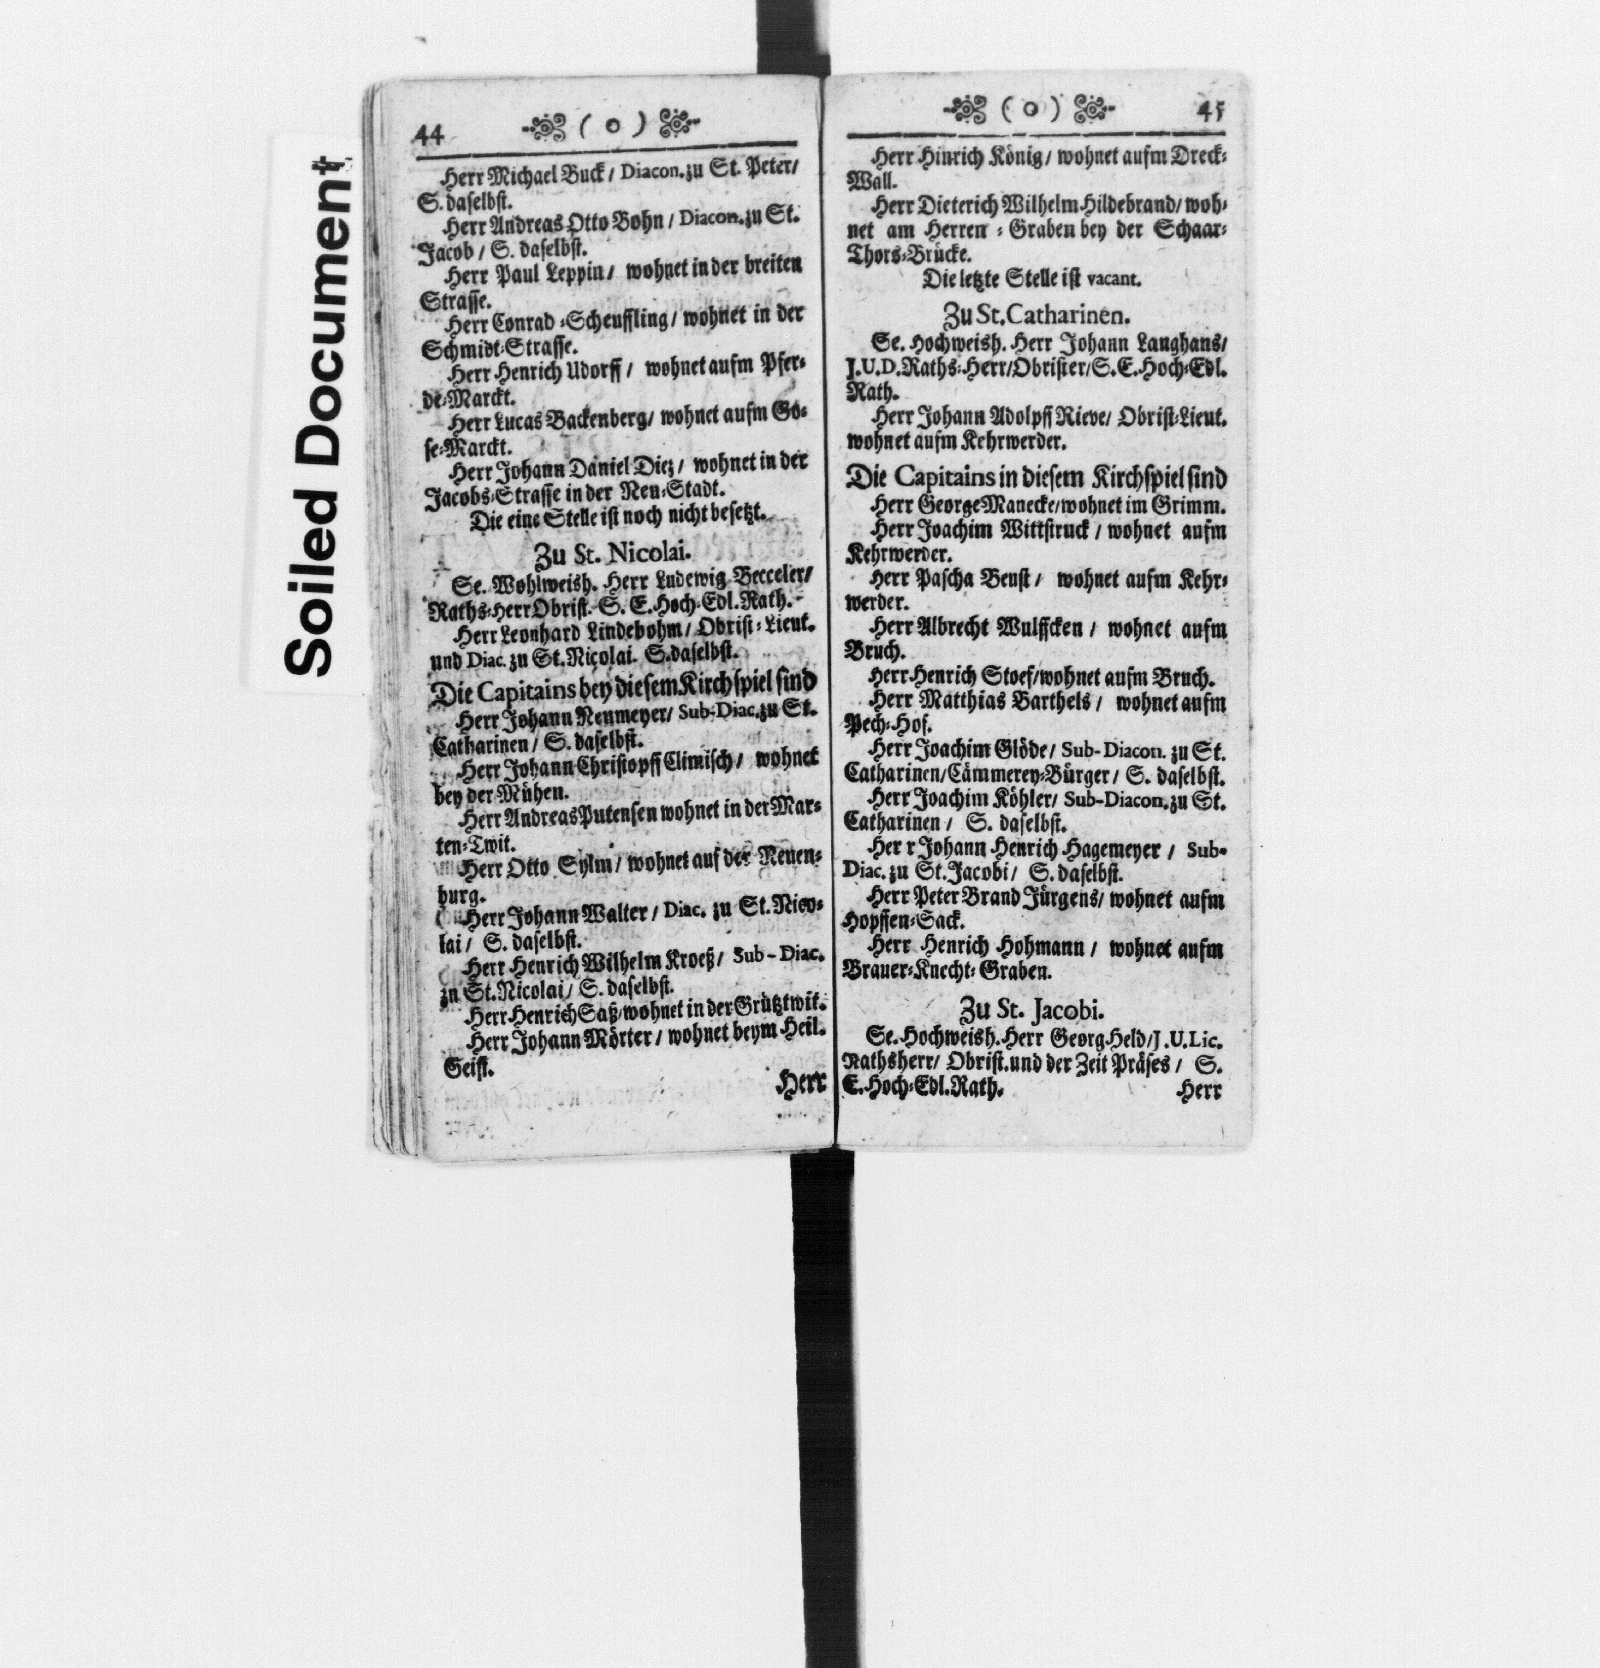 Soiled Document
44
( o )
Herr Michael Buck / Diacon. zu St. Peter/
S. daselbst.
Herr Andreas Otto Bohn / Diacon. zu St.
Jacob / S. daselbst.
Herr Paul Leppin / wohnet in der breiten
Strasse.
Herr Conrad Scheuffling / wohnet in der
Schmidt-Strasse.
Herr Henrich Udorff / wohnet aufm Pfer-
de-Marckt.
Herr Lucas Backenberg / wohnet aufm Go-
se-Marckt.
Herr Johann Daniel Diez / wohnet in der
Jacobs-Strasse in der Neu-Stadt.
Die eine Stelle ist noch nicht besetzt.
Zu St. Nicolai.
Se. Wohlweish. Herr Ludewig Becceler/
Raths-Herr Obrist. S. E. Hoch-Edl. Rath.
Herr Leonhard Lindebohm / Obrist-Lieut.
und Diac. zu St. Nicolai. S. daselbst.
Die Capitains bey diesem Kirchspiel sind
Herr Johann Neumeyer / Sub-Diac. zu St.
Catharinen / S. daselbst.
Herr Johann Christopff Climisch / wohnet
bey der Mühen.
Herr Andreas Putensen wohnet in der Mar-
ten-Twit.
Herr Otto Sylm / wohnet auf der Neuen-
burg.
Herr Johann Walter / Diac. zu St. Nico-
lai / S. daselbst.
Herr Henrich Wilhelm Kroeß / Sub-Diac.
zu St. Nicolai / S. daselbst.
Herr Henrich Saß / wohnet in der Grütztwit.
Herr Johann Mörter / wohnet beym Heil.
Geist.
Herr
( o )
45
Herr Hinrich König / wohnet aufm Dreck-
Wall.
Herr Dieterich Wilhelm Hildebrand / woh-
net am Herren-Graben bey der Schaar-
Thors-Brücke.
Die letzte Stelle ist vacant.
Zu St. Catharinen.
Se. Hochweish. Herr Johann Langhans/
J. U. D. Raths-Herr / Obrister / S. E. Hoch-Edl.
Rath.
Herr Johann Adolpff Rieve / Obrist-Lieut.
wohnet aufm Kehrwerder.
Die Capitains in diesem Kirchspiel sind
Herr George Manecke / wohnet im Grimm.
Herr Joachim Wittstruck / wohnet aufm
Kehrwerder.
Herr Pascha Beust / wohnet aufm Kehr-
werder.
Herr Albrecht Wulffcken / wohnet aufm
Bruch.
Herr Henrich Stoef / wohnet aufm Bruch.
Herr Matthias Barthels / wohnet aufm
Pech-Hof.
Herr Joachim Glöde / Sub-Diacon. zu St.
Catharinen / Cämmerey-Bürger / S. daselbst.
Herr Joachim Köhler / Sub-Diacon. zu St.
Catharinen / S. daselbst.
Her r Johann Henrich Hagemeyer / Sub-
Diac. zu St. Jacobi / S. daselbst.
Herr Peter Brand Jürgens / wohnet aufm
Hopffen-Sack.
Herr Henrich Hohmann / wohnet aufm
Brauer-Knecht-Graben.
Zu St. Jacobi.
Se. Hochweish. Herr Georg Held / J. U. Lic.
Rathsherr / Obrist. und der Zeit Präses / S.
E. Hoch-Edl. Rath.
Herr